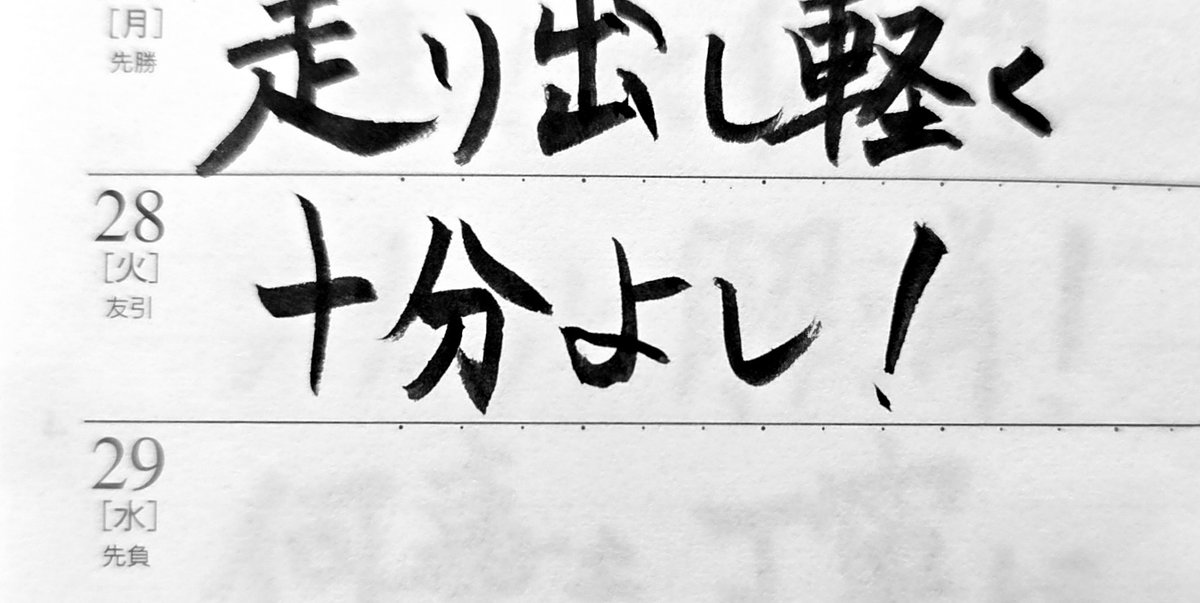 [月]
先勝
走り出し軽く
28
[火]
友引
十分よし!
29
[水]
先負